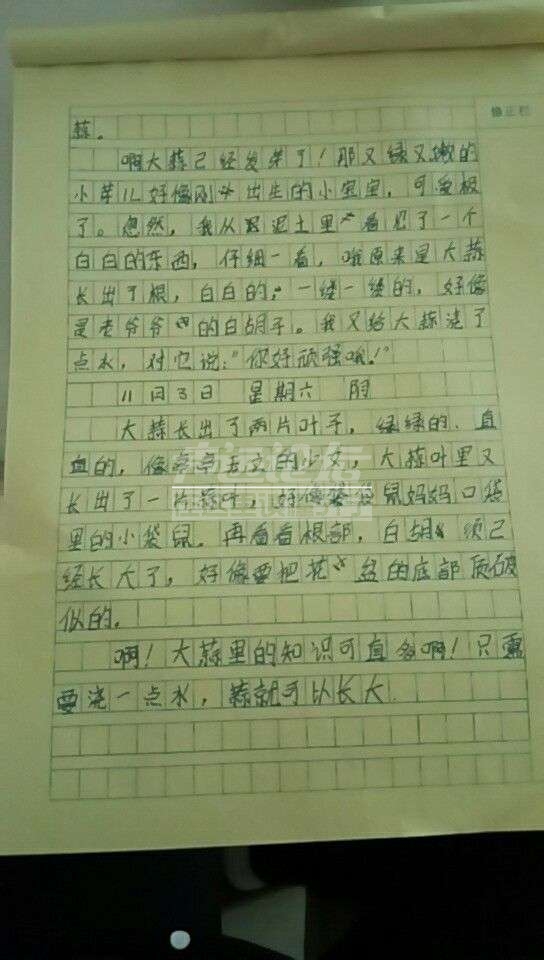 修正栏
蒜。
啊大蒜已经发芽了！那又绿又嫩的
小芽儿好像刚出生的小宝宝，可爱极
了。忽然，我从泥土里看见了一个
白白的东西，仔细一看，哦原来是大蒜
长出了根，白白的，一缕一缕的，好像
是老爷爷的白胡子。我又给大蒜浇了
点水，对它说："你好顽强哦！"
11月3日 星期六 阴
大蒜长出了两片叶子，绿绿的、直
直的，像亭亭玉立的少女，大蒜叶里又
长出了一片蒜叶，好像袋鼠妈妈口袋
里的小袋鼠。再看看根部，白胡须已
经长大了，好像要把花盆的底部顶破
似的。
啊！大蒜里的知识可真多啊！只需
要浇一点水，蒜就可以长大